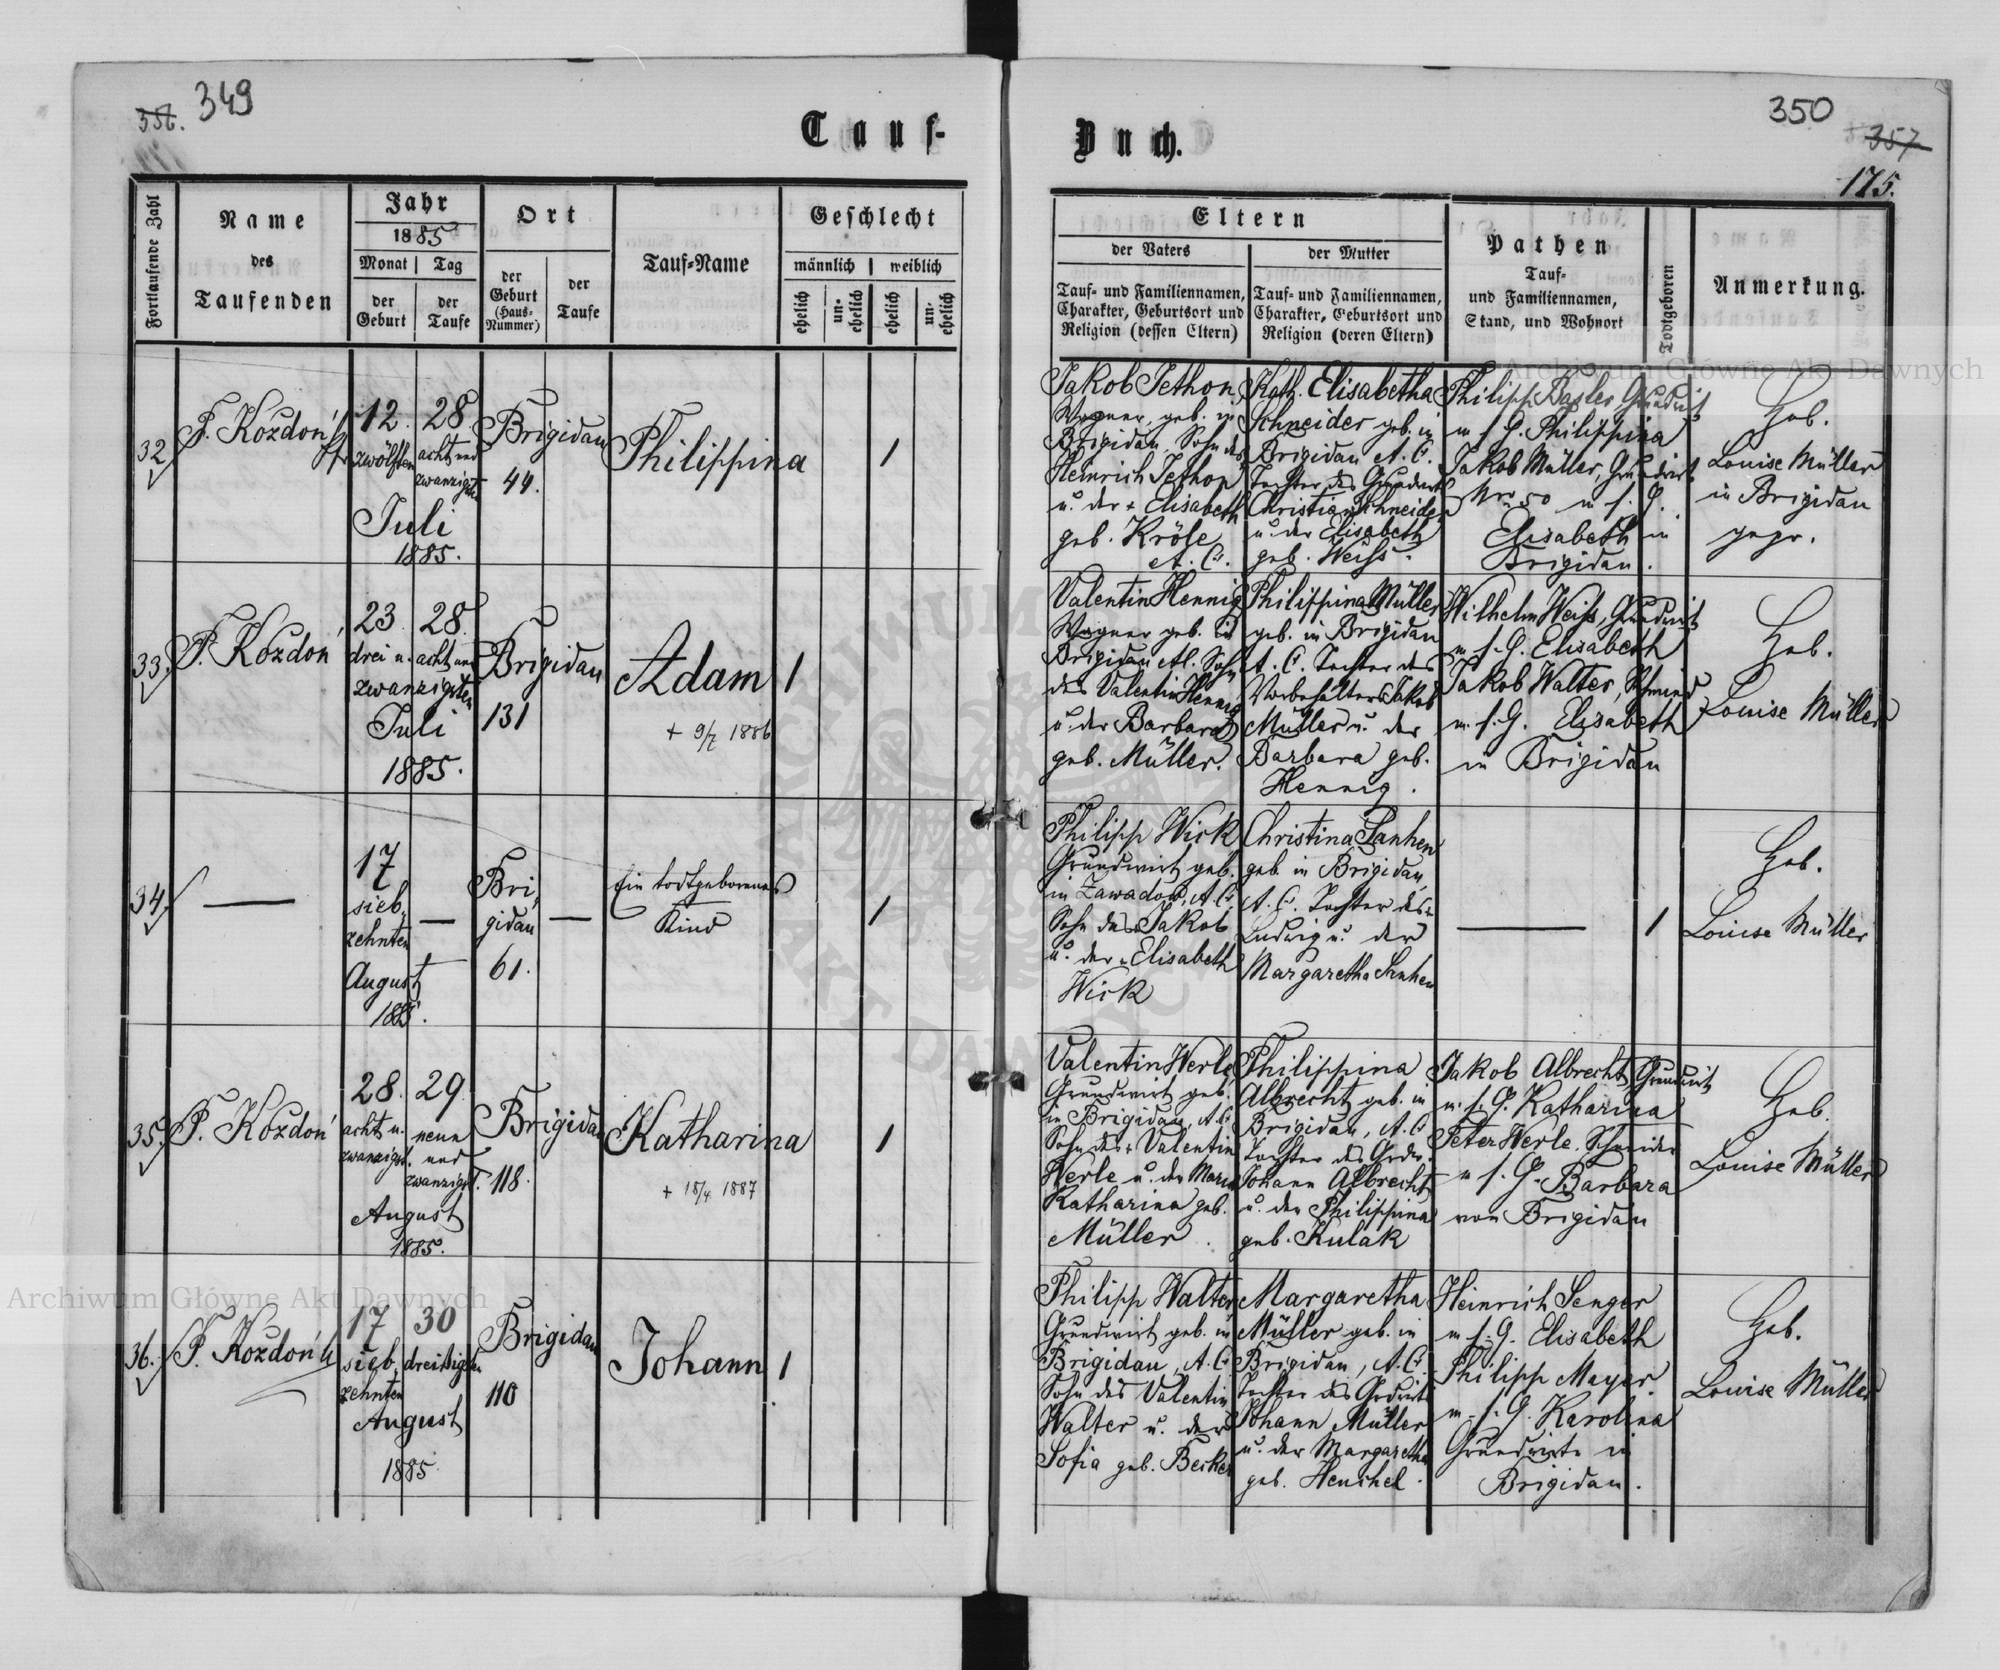 349
356.
Tauf-
Buch.
350
357
175.
Fortlaufende Zahl
Name
des
Taufenden
Jahr
1885
Monat
Tag
der
Geburt
der
Taufe
Ort
der
Geburt
(Haus-
Nummer)
der
Taufe
Tauf-Name
Geschlecht
männlich
weiblich
ehelich
un-
ehelich
ehelich
un-
ehelich
Eltern
der Vaters
der Mutter
Tauf- und Familiennamen,
Charakter, Geburtsort und
Religion (dessen Eltern)
Tauf- und Familiennamen,
Charakter, Geburtsort und
Religion (deren Eltern)
Pathen
Tauf-
und Familiennamen,
Stand, und Wohnort
Todtgeboren
Anmerkung.
32
F. Kozdoń
12. 28
zwölften acht und
zwanzigsten
Juli
1885.
Brigidau
44.
Philippina
1
Jakob Jethon
Wagner, geb. in
Brigidau, Sohn des
Heinrich Jethon
u. der + Elisabeth
geb. Kröle
A. C.
Kath. Elisabetha
Schneider geb. in
Brigidau A. C.
Tochter des Grundwirt
Christian Schneider
u. der Elisabeth
geb. Weiss.
Philipp Basler Grundwirt
m. s. G. Philippina
Jakob Müller, Grundwirt
Nro 50 m. s. G.
Elisabeth in
Brigidau.
Heb.
Louise Müller
in Brigidau
gepr.
33.
F. Kozdoń
23. 28.
drei u. acht und
zwanzigsten
Juli
1885.
Brigidau
131
Adam
+ 9/7 1886
1
Valentin Hennig
Wagner geb. in
Brigidau A.C. Sohn
des Valentin Hennig
u. der Barbara
geb. Müller.
Philippina Müller
geb. in Brigidau
A. C. Tochter des
Vorbehalters Jakob
Müller u. der
Barbara geb.
Hennig.
Wilhelm Weiss, Grundwirt
m. s. G. Elisabeth
Jakob Walter, Schmied
m. s. G. Elisabeth
in Brigidau
Heb.
Louise Müller
34.
17
sieb-
zehnten
August
1885.
Bri-
gidau
61.
Ein todtgeborenes
Kind
1
Philipp Wick
Grundwirt geb.
in Zawadow, A. C.
Sohn des Jakob
u. der Elisabeth
Wick
Christina
geb. in Brigidau
A. C. Tochter des
Ludwig u. der
Margaretha
1
Heb.
Louise Müller
35.
F. Kozdoń
28. 29.
acht u. neun
zwanzigst. und
zwanzigst.
August
1885.
Brigidau
118.
Katharina
+ 18/4 1887
1
Valentin Werle
Grundwirt geb.
in Brigidau, A. C.
Sohn des + Valentin
Werle u. der Maria
Katharina geb.
Müller.
Philippina
Albrecht geb. in
Brigidau, A. C.
Tochter des Grdw.
Johann Albrecht
u. der Philippina
geb. Kulak
Jakob Albrecht, Grundwirt
m. s. G. Katharina
Peter Werle, Schneider
m. s. G. Barbara
von Brigidau
Heb.
Louise Müller
36.
F. Kozdoń
17 30
sieb- dreißigsten
zehnten
August
1885
Brigidau
110
Johann
1
Philipp Walter
Grundwirt geb. in
Brigidau, A. C.
Sohn des Valentin
Walter u. der
Sofia geb. Becker
Margaretha
Müller geb. in
Brigidau, A. C.
Tochter des Grdwirts
Johann Müller
u. der Margaretha
geb. Henchel.
Heinrich Senger
m. s. G. Elisabeth
Philipp Mayer.
m. s. G. Karolina
Grundwirte in
Brigidau.
Heb.
Louise Müller
Archiwum Główne Akt Dawnych
Archiwum Główne Akt Dawnych
ARCHIWUM
AKT DAWNYCH